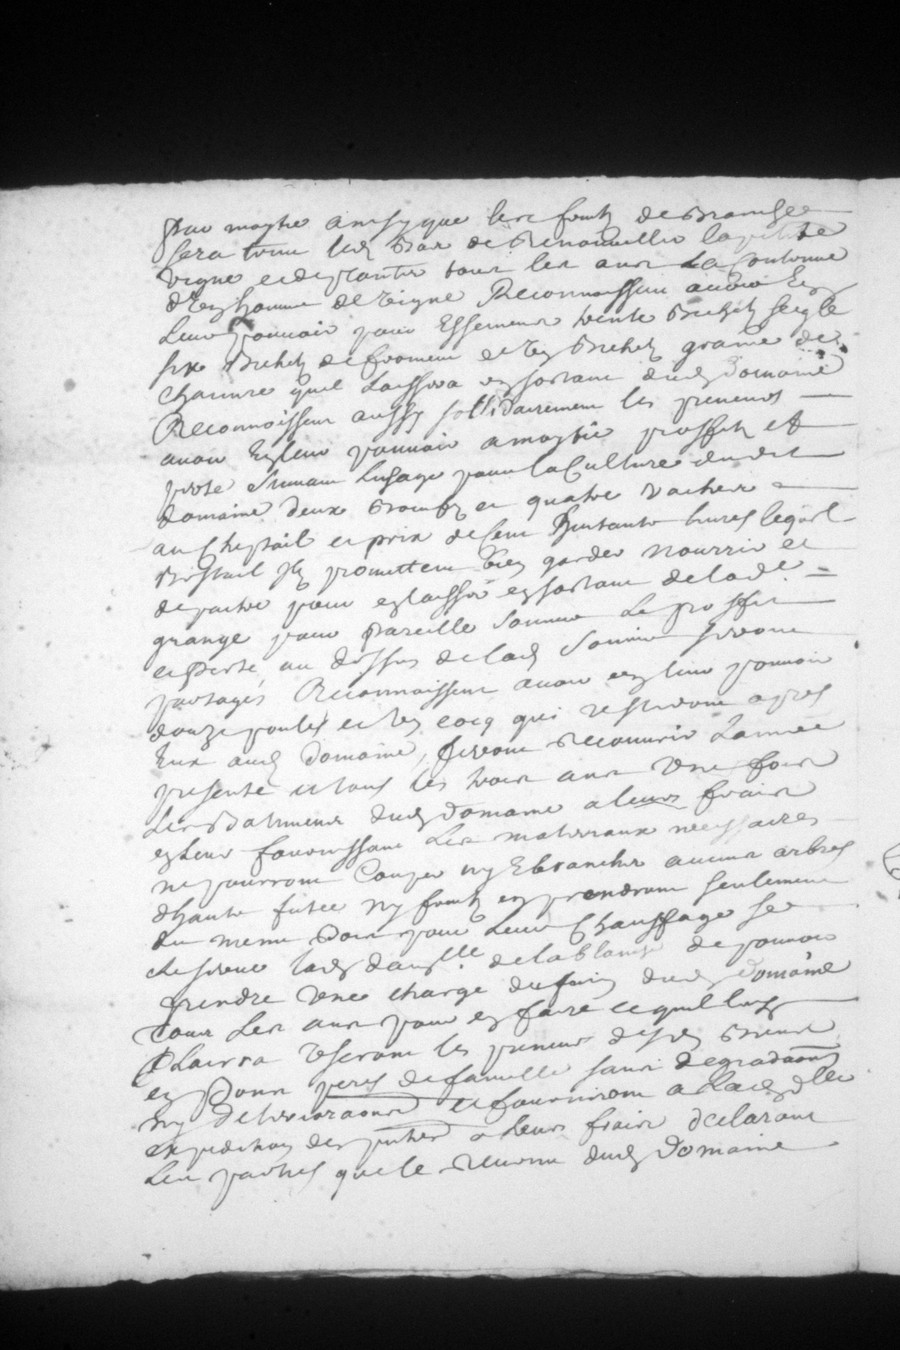 par moytie ainsy que les fruits de
sera tenu led de Renouveller la petite
vigne et de planter tous les ans La Contenue
d'un homme de vigne Reconnoissent avoir En
Leur pouvoir pour Essemence trente Bichets seigle
six Bichets de froment et un Bichet graine de
chanvre quil Laissera en sortant dud Domaine
Reconnoissent aussy sollidairement les preneurs
avoir En leur pouvoir a moytié proffit et
perte suivant Lusage pour la Culture dudit
domaine deux Bœufs et quatre vaches
au Cheptail et prix de livres lequel
Bestail ils promettent bien garder nourrir et
pour en laisser en sortant de lade
grange pour Pareille somme Le proffit
et perte au dessus de lad Somme seront
partagés Reconnoissent avoir en leur pouvoir
douze poules et un cocq qui resteront apres
Eux aud Domaine, feront recouvrir L'année
presente et tous les trois ans une fois
Les Batiments dud Domaine a leurs fraix
en Leur fournissant Les materiaux necessaires
ne pourront Couper ny Ebrancher aucuns arbres
d'haute futee ny fruits en prendront seulement
du menu Bois pour Leur Chauffage se
reserve lad delle de la de pouvoir
prendre une charge de foin dud Domaine
tous Les ans pour en faire ce quil luy
Plairra useront les preneurs desd Biens
en Bons peres de famille sans degradaons
ny deterioraons et fourniront a Lad dlle
expedition des pntes a leurs fraix declarant
Les parties que le revenu dud Domaine